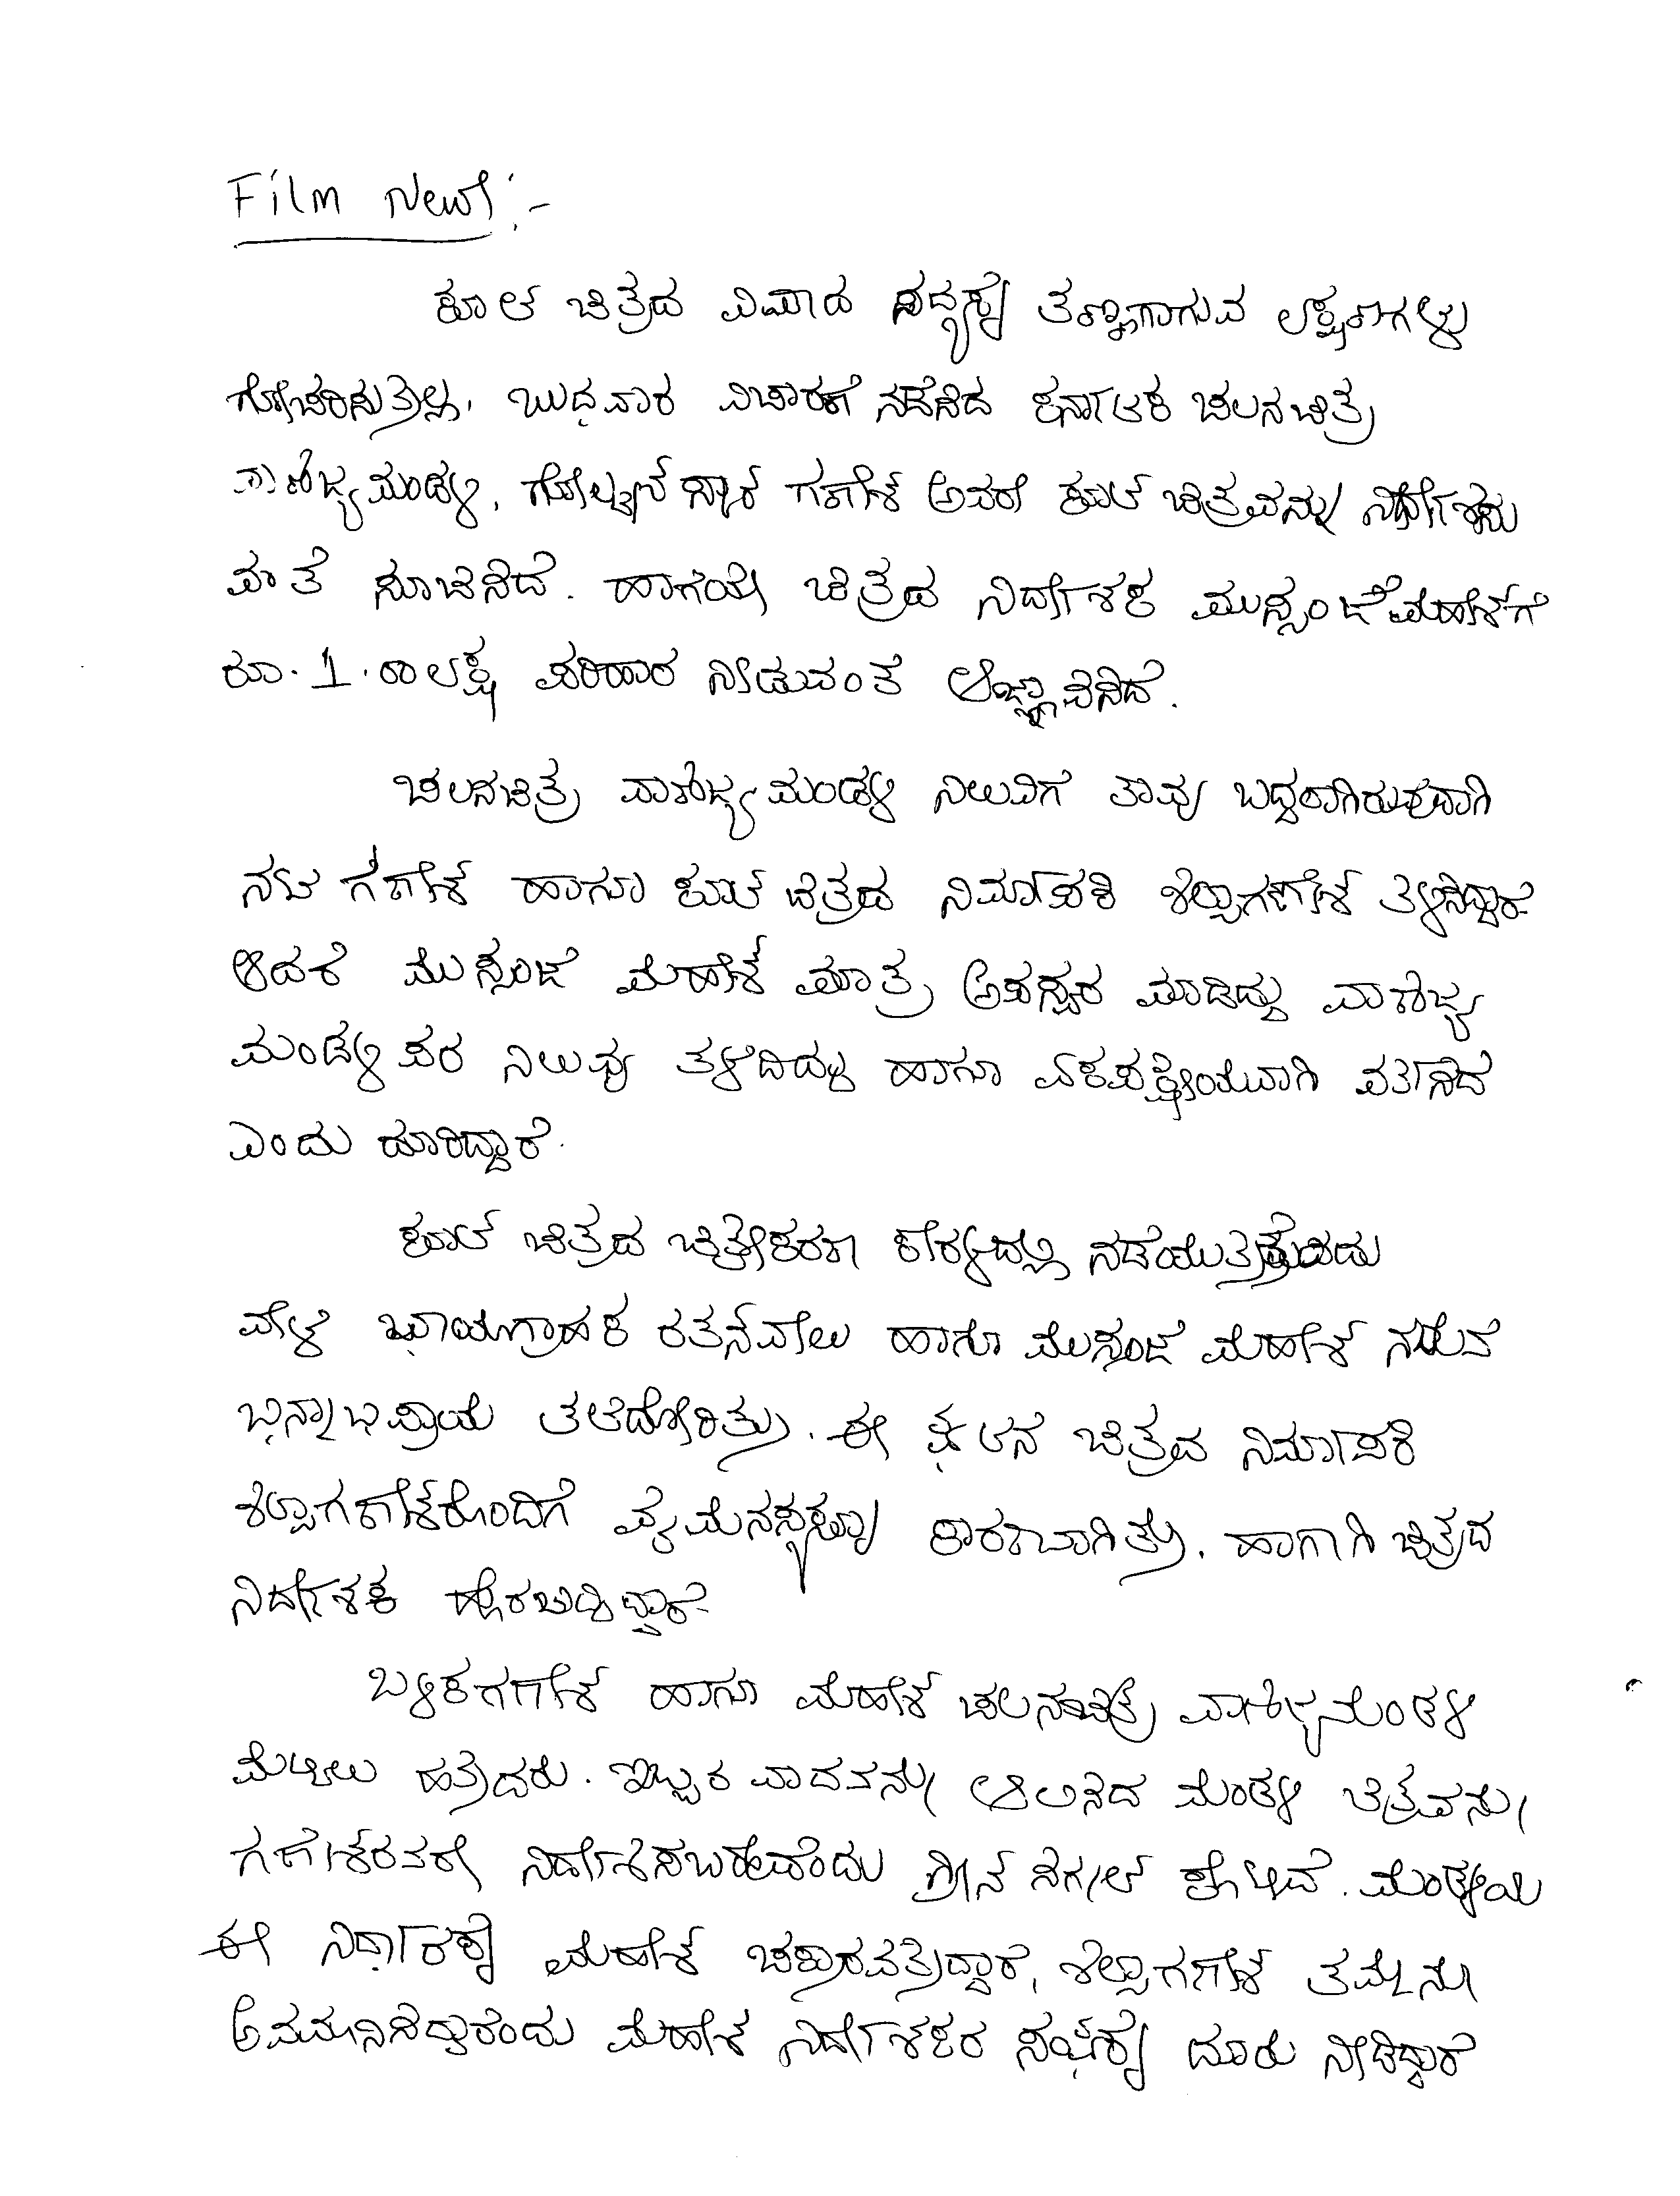 Film News :-
ಕೂಲ್ ಚಿತ್ರದ ವಿವಾದ ಸದ್ಯಕ್ಕೆ ತಣ್ಣಗಾಗುವ ಲಕ್ಷಣಗಳು
ಗೋಚರಿಸುತ್ತಿಲ್ಲ. ಬುಧವಾರ ವಿಚಾರಣೆ ನಡೆಸಿದ ಕರ್ನಾಟಕ ಚಲನಚಿತ್ರ
ವಾಣಿಜ್ಯ ಮಂಡಳಿ, ಗೋಲ್ಡನ್ ಸ್ಟಾರ್ ಗಣೇಶ್ ಅವರೇ ಕೂಲ್ ಚಿತ್ರವನ್ನು ನಿರ್ದೇಶಿಸು
ವಂತೆ ಸೂಚಿಸಿದೆ. ಹಾಗೆಯೇ ಚಿತ್ರದ ನಿರ್ದೇಶಕ ಮುಸ್ಸಂಜೆ ಮಹೇಶ್‌ಗೆ
ರೂ. 1.00 ಲಕ್ಷ ಪರಿಹಾರ ನೀಡುವಂತೆ ಆಜ್ಞಾಪಿಸಿದೆ.
ಚಲನಚಿತ್ರ ವಾಣಿಜ್ಯ ಮಂಡಳಿ ನಿಲುವಿಗೆ ತಾವು ಬದ್ಧರಾಗಿರುವುದಾಗಿ
ನಟ ಗಣೇಶ್ ಹಾಗೂ ಕೂಲ್ ಚಿತ್ರದ ನಿರ್ಮಾಪಕಿ ಶಿಲ್ಪಾಗಣೇಶ್ ತಿಳಿಸಿದ್ದಾರೆ
ಆದರೆ ಮುಸ್ಸಂಜೆ ಮಹೇಶ್ ಮಾತ್ರ ಅಪಸ್ವರ ಮಾಡಿದ್ದು ವಾಣಿಜ್ಯ
ಮಂಡಳಿ ಪರ ನಿಲುವು ತಳೆದಿದ್ದು ಹಾಗೂ ಏಕಪಕ್ಷೀಯವಾಗಿ ವರ್ತಿಸಿದೆ
ಎಂದು ದೂರಿದ್ದಾರೆ.
ಕೂಲ್ ಚಿತ್ರದ ಚಿತ್ರೀಕರಣ ಕೇರಳದಲ್ಲಿ ನಡೆಯುತ್ತಿರುವ
ವೇಳೆ ಛಾಯಾಗ್ರಾಹಕ ರತ್ನವೇಲು ಹಾಗೂ ಮುಸ್ಸಂಜೆ ಮಹೇಶ್ ನಡುವೆ
ಭಿನ್ನಾಭಿಪ್ರಾಯ ತಲೆದೋರಿತ್ತು. ಈ ಘಟನೆ ಚಿತ್ರದ ನಿರ್ಮಾಪಕಿ
ಶಿಲ್ಪಾಗಣೇಶ್‌ರೊಂದಿಗೆ ವೈಮನಸ್ಸಕ್ಕೂ ಕಾರಣವಾಗಿತ್ತು. ಹಾಗಾಗಿ ಚಿತ್ರದ
ನಿರ್ದೇಶಕ ಹೊರಬಂದಿದ್ದಾರೆ
ಬಳಿಕ ಗಣೇಶ್ ಹಾಗೂ ಮಹೇಶ್ ಚಲನಚಿತ್ರ ವಾಣಿಜ್ಯ ಮಂಡಳಿ
ಮೆಟ್ಟಿಲು ಹತ್ತಿದರು. ಇಬ್ಬರ ವಾದವನ್ನು ಆಲಿಸಿದ ಮಂಡಳಿ ಚಿತ್ರವನ್ನು
ಗಣೇಶರವರೇ ನಿರ್ದೇಶಿಸಬಹುದೆಂದು ಗ್ರೀನ್ ಸಿಗ್ನಲ್ ಕೊಟ್ಟಿದೆ. ಮಂಡಳಿಯ
ಈ ನಿರ್ಧಾರಕ್ಕೆ ಮಹೇಶ್ ಚಕಾರವೆತ್ತಿದ್ದಾರೆ, ಶಿಲ್ಪಾಗಣೇಶ ತಮ್ಮನ್ನು
ಅವಮಾನಿಸಿದ್ದಾರೆಂದು ಮಹೇಶ ನಿರ್ದೇಶಕರ ಸಂಘಕ್ಕೆ ದೂರು ನೀಡಿದ್ದಾರೆ